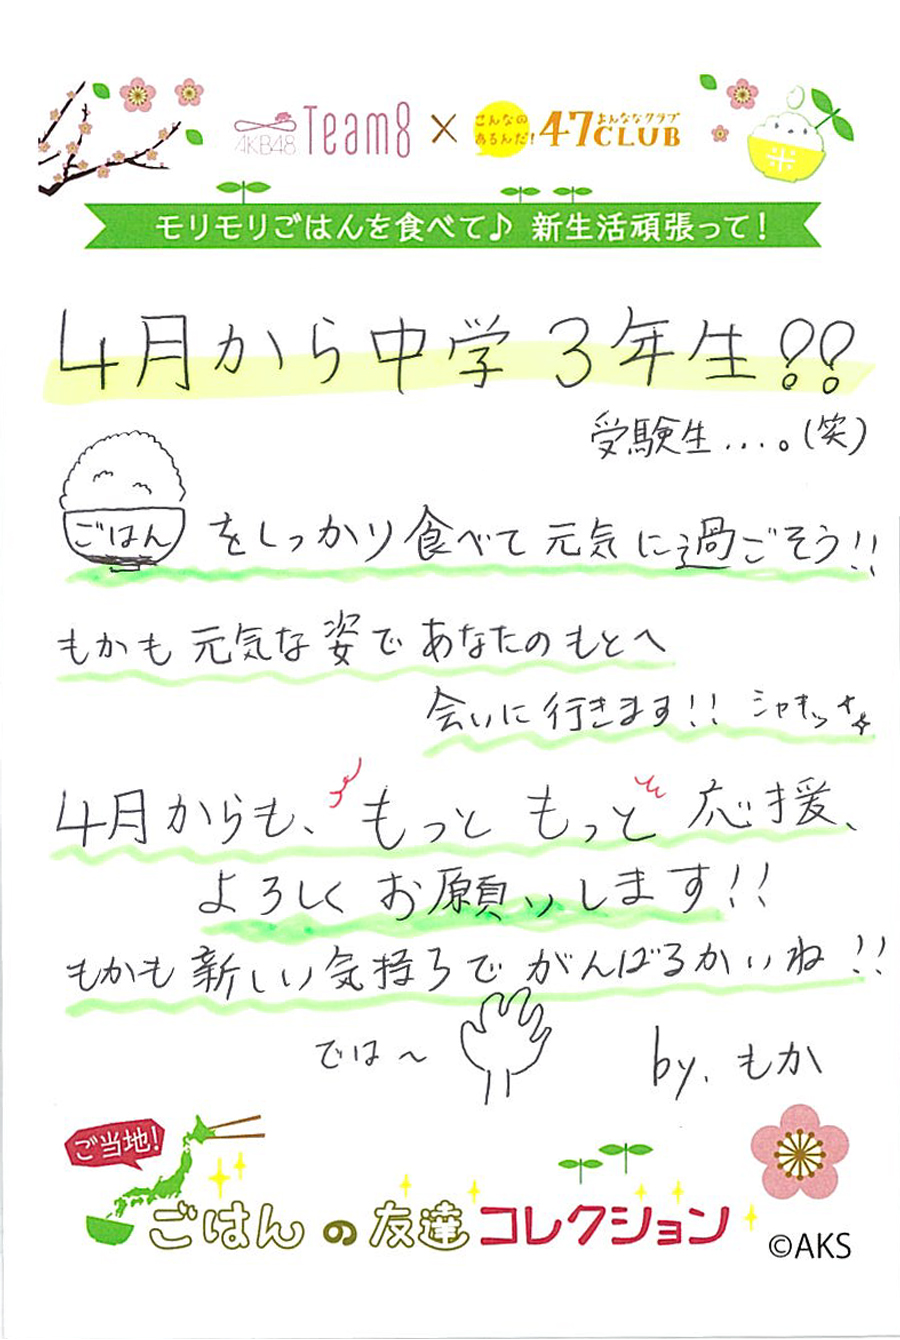 AKB48 Team8 × こんなのあるんだ! 47CLUB よんななクラブ
米
モリモリごはんを食べて♪ 新生活頑張って!
4月から中学3年生!?
受験生....。(笑)
ごはん をしっかり食べて元気に過ごそう!!
もかも元気な姿であなたのもとへ
会いに行きます!! シャキッナ
4月からも、もっともっと応援、
よろしくお願いします!!
もかも新しい気持ちでがんばるかいね!!
では〜
by. もか
ご当地!
ごはんの友達コレクション
©AKS